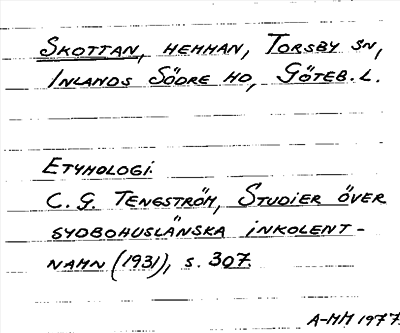 SKOTTAN, HEMMAN, TORSBY SN,
INLANDS SÖDRE HD, GÖTEB. L.
ETYMOLOGI.
C. G. TENGSTRÖM, STUDIER ÖVER
SYDBOHUSLÄNSKA INKOLENT-
NAMN (1931), S. 307.
A-MM 1977.